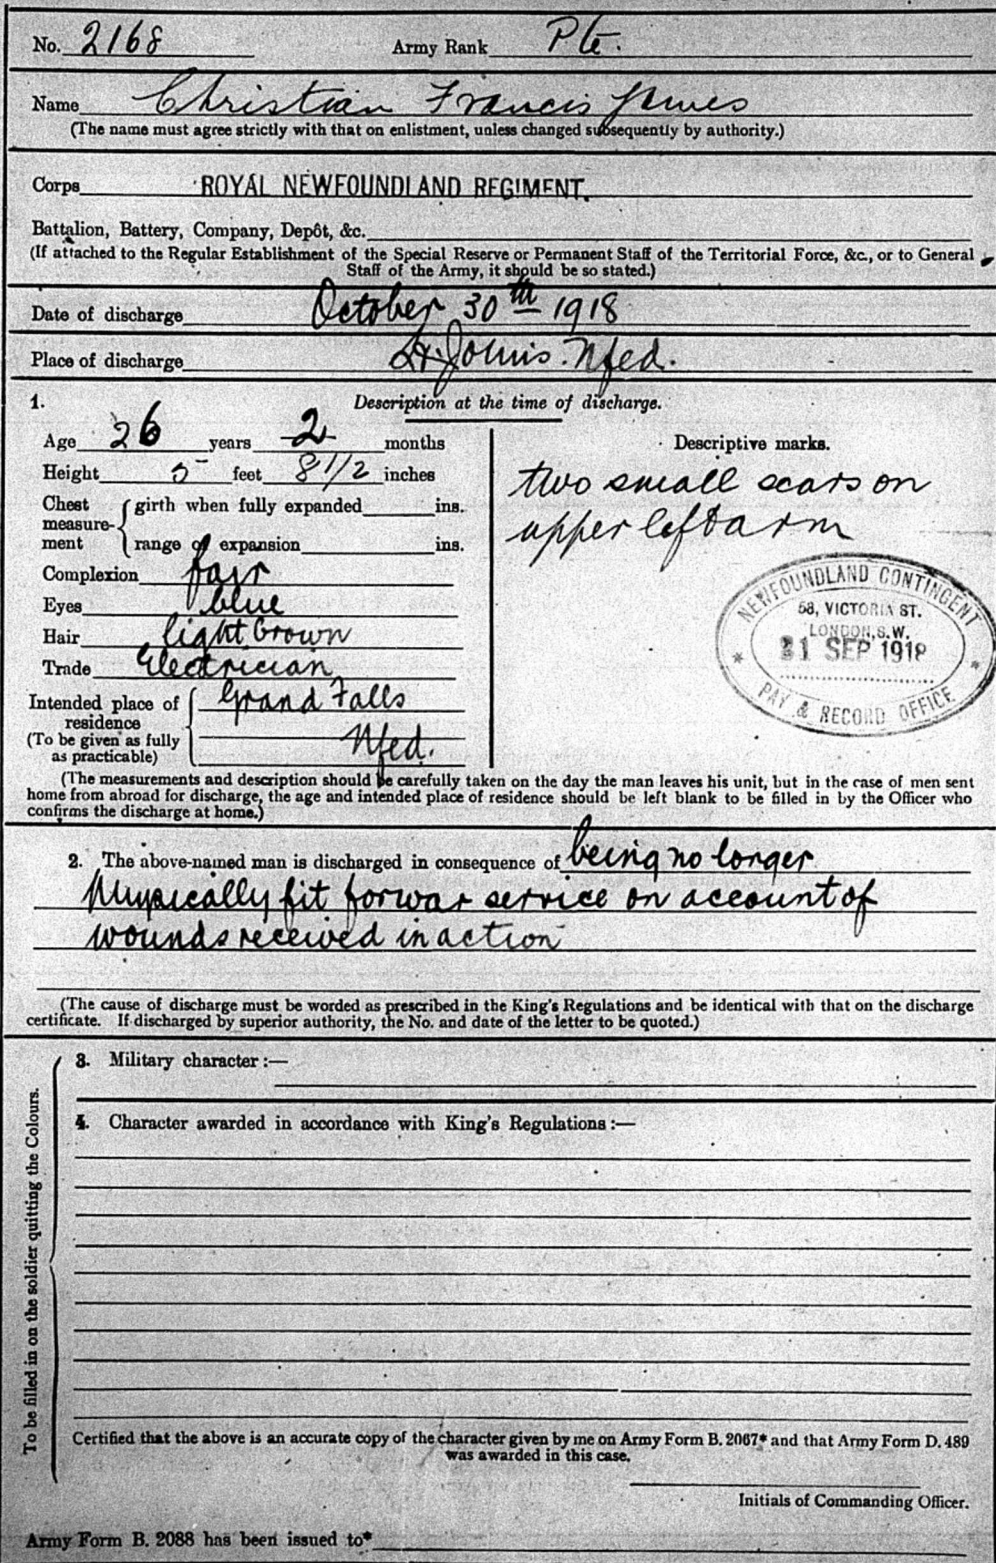 No. 2168 Army Rank Pte.
Name Christian Francis James
(The name must agree strictly with that on enlistment, unless changed subsequently by authority.)
Corps ROYAL NEWFOUNDLAND REGIMENT.
Battalion, Battery, Company, Depôt, &c.
(If attached to the Regular Establishment of the Special Reserve or Permanent Staff of the Territorial Force, &c., or to General
Staff of the Army, it should be so stated.)
Date of discharge October 30th 1918
Place of discharge St. Johns. Nfed.
1. Description at the time of discharge.
Age 26 years 2 months
Height 5 feet 8 1/2 inches
Chest measurement { girth when fully expanded ins.
range of expansion ins.
Complexion fair
Eyes blue
Hair light brown
Trade Electrician
Intended place of residence Grand Falls
(To be given as fully as practicable) Nfed.
Descriptive marks.
two small scars on
upper left arm
NEWFOUNDLAND CONTINGENT
58, VICTORIA ST.
LONDON, S.W.
21 SEP 1918
* PAY & RECORD OFFICE *
(The measurements and description should be carefully taken on the day the man leaves his unit, but in the case of men sent
home from abroad for discharge, the age and intended place of residence should be left blank to be filled in by the Officer who
confirms the discharge at home.)
2. The above-named man is discharged in consequence of being no longer
physically fit for war service on account of
wounds received in action
(The cause of discharge must be worded as prescribed in the King's Regulations and be identical with that on the discharge
certificate. If discharged by superior authority, the No. and date of the letter to be quoted.)
To be filled in on the soldier quitting the Colours.
3. Military character :—
4. Character awarded in accordance with King's Regulations :—
Certified that the above is an accurate copy of the character given by me on Army Form B. 2067* and that Army Form D. 489
was awarded in this case.
Initials of Commanding Officer.
Army Form B. 2088 has been issued to*